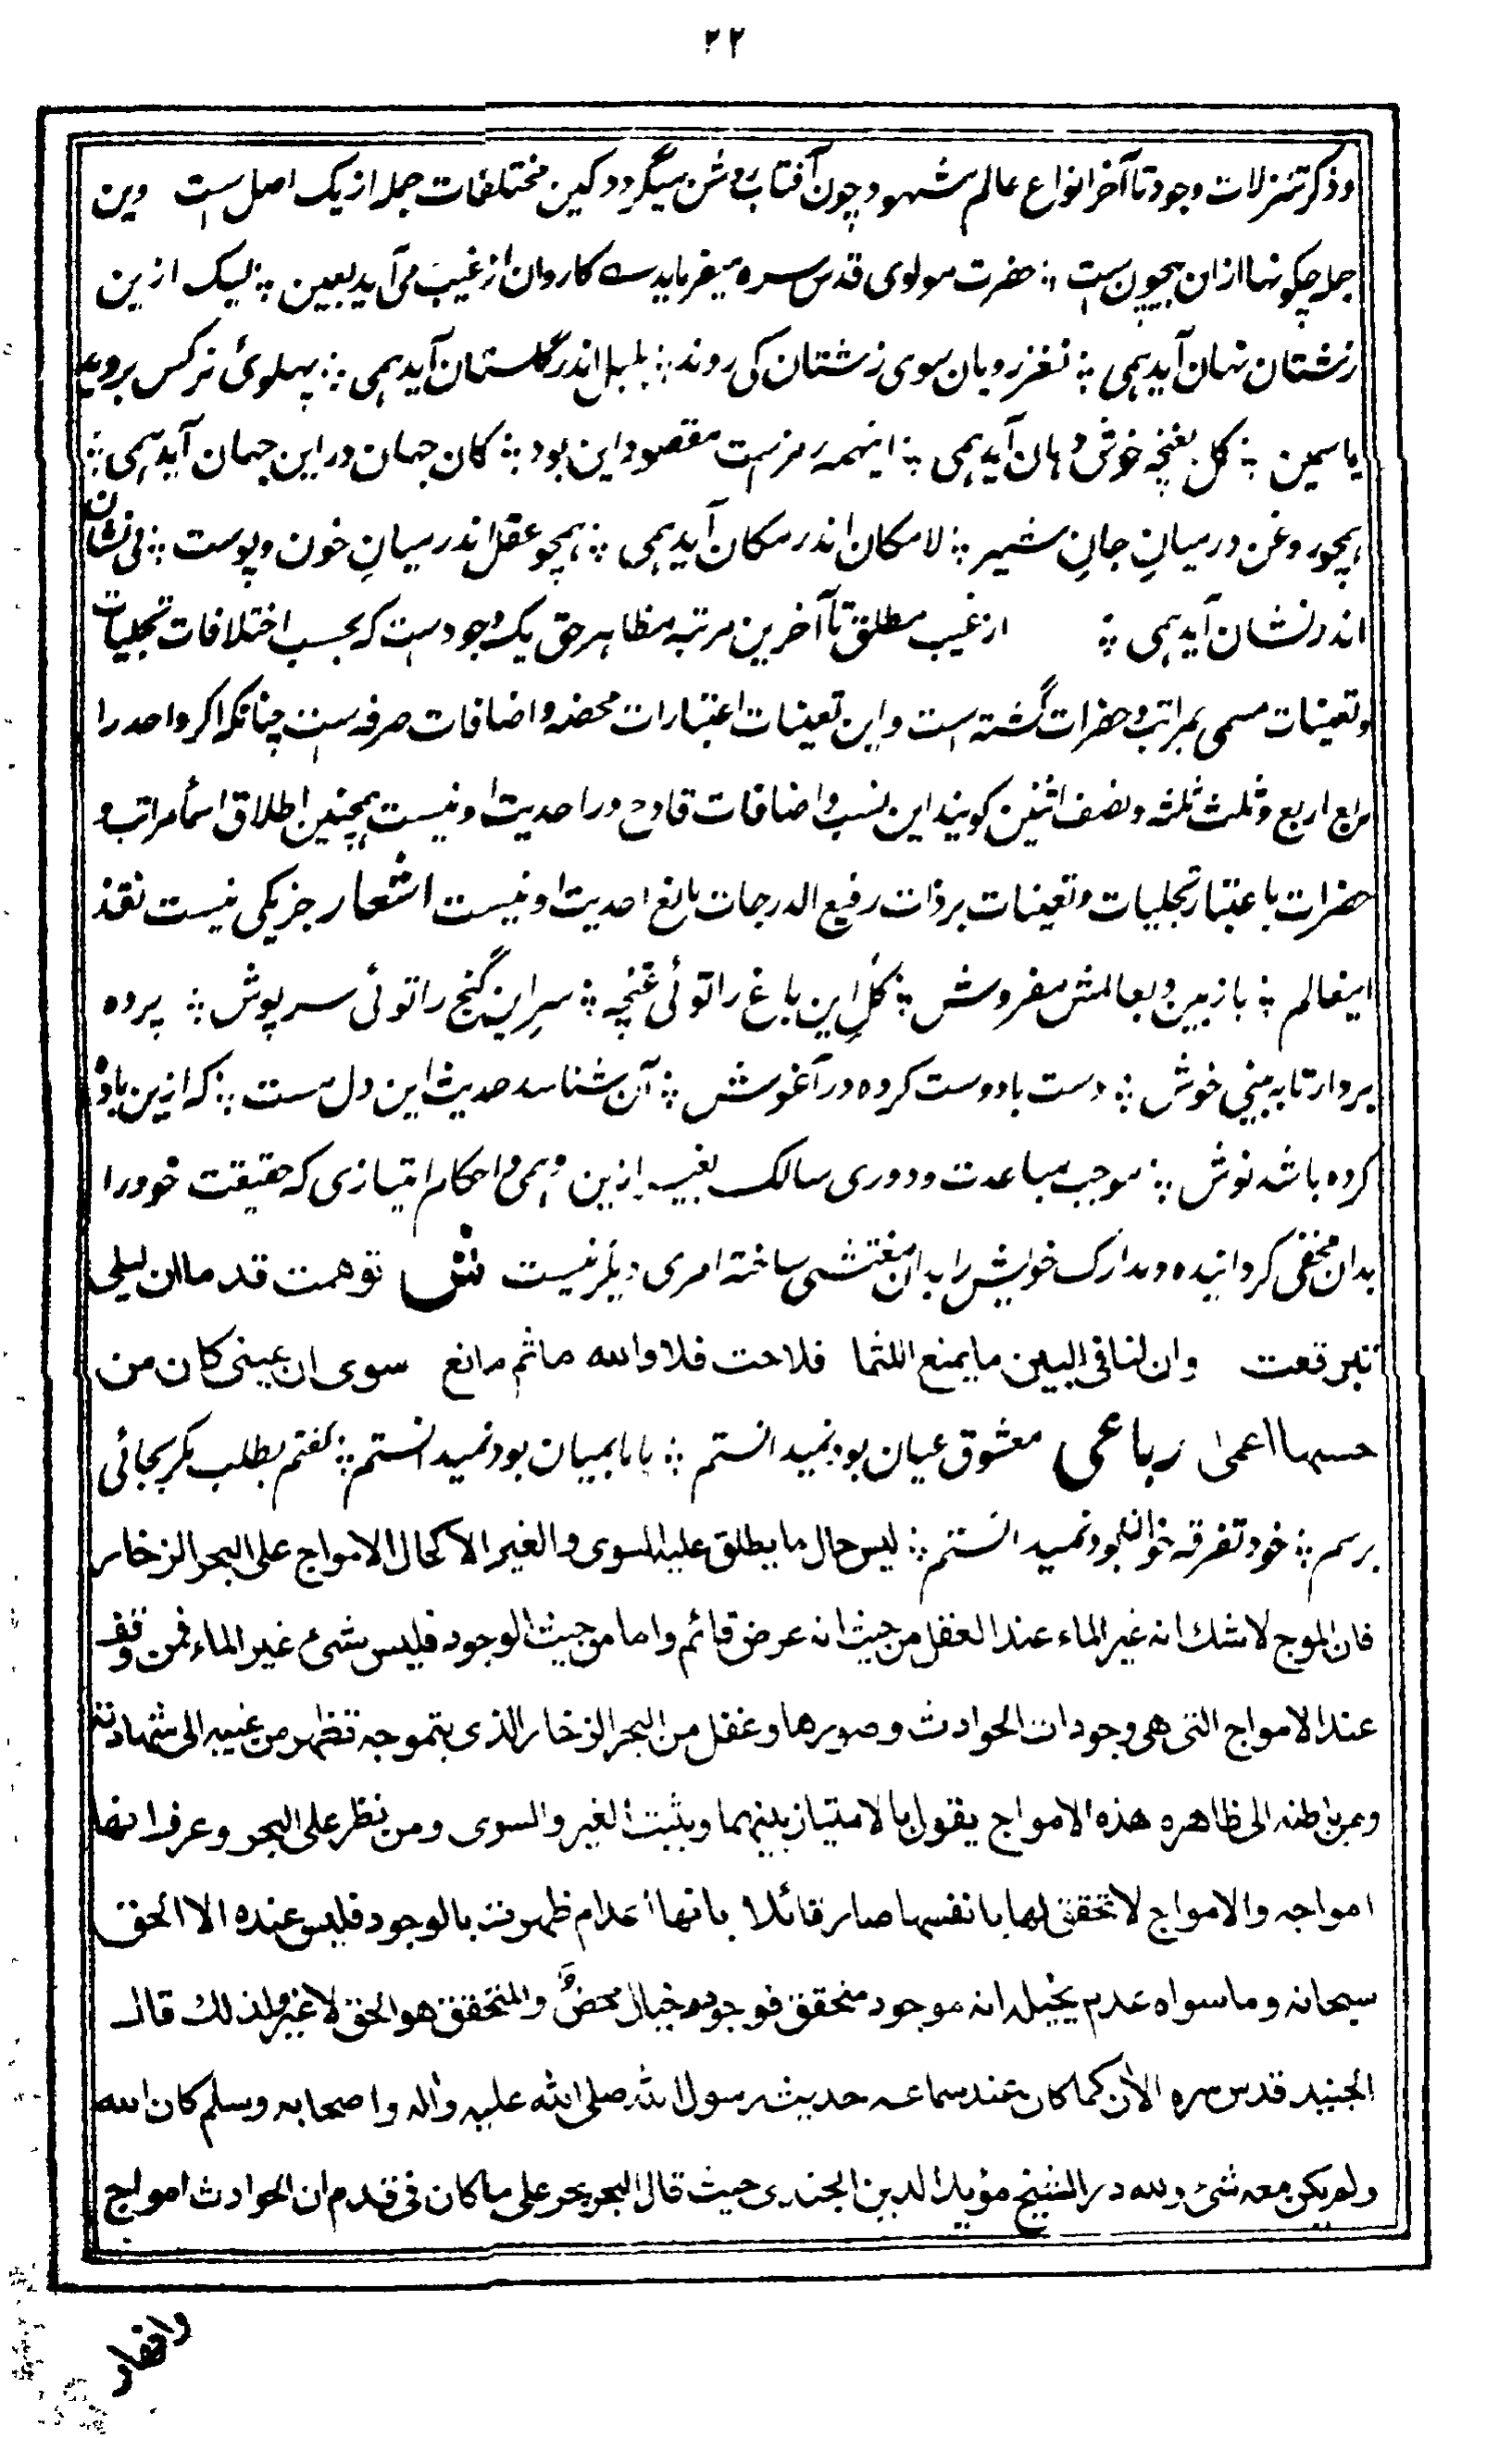 ۲۲
وذکر تنزلات وجود تا آخر انواع عالم شهود چون آفتاب روشن میگردد کین مختلفات جمله از یک اصل ست وین
جمله چکونها ازان بیچون ست ؞ حضرت مولوی قدس سره میفرماید ے کاروان از غیب می آید بعین ؞ لیک ازین
زشتان نهان آید همی ؞ نغز رویان سوی زشتان کی روند ؞ بلبل اندر گلستان آید همی ؞ پهلوئ نرکس بروید
یاسمین ؞ کل بغنچه خوش دهان آید همی ؞ اینهمه رمزست مقصود این بود ؞ کان جهان در این جهان آید همی ؞
همچو روغن در میانِ جانِ شیر ؞ لامکان اندر مکان آید همی ؞ همچو عقل اندر میانِ خون و پوست ؞ بی نشان
اندر نشان آید همی ؞ از غیب مطلق تا آخرین مرتبه مظاهر حق یک وجودست که بحسب اختلافات تجلیات
وتعینات مسمی بمراتب وحضرات گشته است واین تعینات اعتبارات محضه واضافات صرفه ست چنانکه اکر واحد را
ربع اربع وثلث ثلثه ونصف اثنین کویند این نسب واضافات قادح در احدیت او نیست همچنین اطلاق اسما مراتب و
حضرات باعتبار تجلیات وتعینات بر ذات رفیع الدرجات مانع احدیت او نیست اشعار جز یکی نیست نقد
اینعالم ؞ باز بین و بعالمش مفروش ؞ کلِ این باغ را توئی غنچه ؞ سرِ این گنج را توئی سرپوش ؞ پرده
بردار تا به بینی خوش ؞ دست با دوست کرده در آغوش ؞ آن شناسد حدیث این دل مست ؞ که ازین باده
کرده باشد نوش ؞ موجب مباعدت و دوری سالک بغیر ازین وهمی و احکام امتیازی که حقیقت خود را
بدان مخفی کردانیده ومدارک خویش را بدان مغتشی ساخته امری دیگر نیست ش توهمت قدما ان لیلی
تبرقعت وان لنا فی البین ما یمنع اللثما فلاحت فلا والله ما ثم مانع سوی ان عینی کان من
حسنها اعمی رباعی معشوق عیان بود نمیدانستم ؞ باما بمیان بود نمیدانستم ؞ کفتم بطلب مکر بجائی
برسم ؞ خود تفرقه خوا آن بود نمیدانستم ؞ لیس حال ما یطلق علیه السوی والغیر الا کحال الامواج علی البحر الزخار
فان الموج لاشك انه غیر الماء عند العقل من حیث انه عرض قائم واما من حیث الوجود فلیس شیء غیر الماء فمن وقف
عند الامواج التی هی وجودات الحوادث وصورها وغفل من البحر الزخار الذی بتموجه تظهر من غیبه الی شهادته
ومن باطنه الی ظاهره هذه الامواج یقول بالامتیاز بینهما ویثبت الغیر والسوی ومن نظر علی البحر وعرف انها
امواجه والامواج لا تحقق لها بانفسها صار قائلا بانها اعدام ظهرت بالوجود فلیس عنده الا الحق
سبحانه وما سواه عدم یخیل انه موجود متحقق فوجوده خیال محض والمتحقق هو الحق لا غیر ولذلك قال
الجنید قدس سره الان کما کان عند سماعه حدیث رسول الله صلی الله علیه واله واصحابه وسلم کان الله
ولم یکن معه شیء ولله در الشیخ مؤید الدین الجندی حیث قال البحر بحر علی ما کان فی قدم ان الحوادث امواج
وانهار